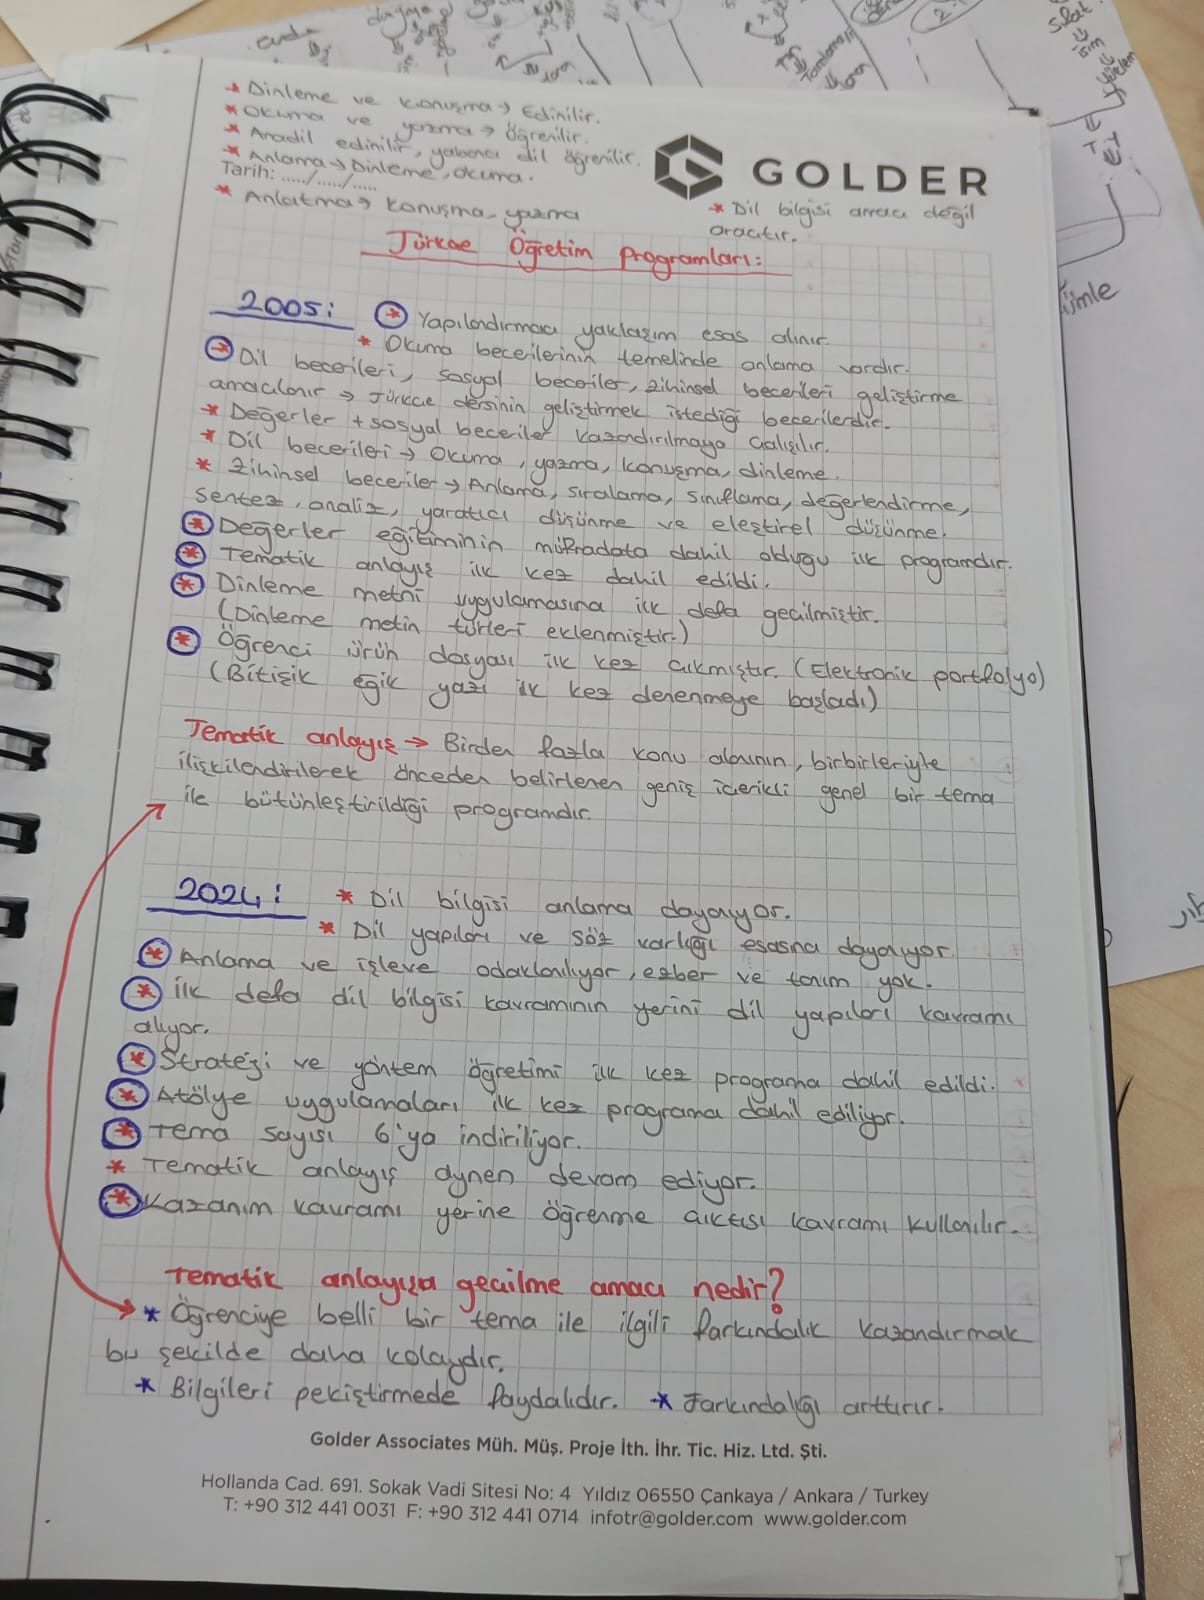 * Dinleme ve konuşma → Edinilir.
* Okuma ve yazma → öğrenilir.
* Anadil edinilir, yabancı dil öğrenilir.
* Anlama → Dinleme, okuma.
Tarih: ...../...../.....
* Anlatma → konuşma, yazma
GOLDER
* Dil bilgisi amaç değil
araçtır.
Türkçe Öğretim Programları:
2005: * Yapılandırmacı yaklaşım esas alınır.
* Okuma becerilerinin temelinde anlama vardır.
* Dil becerileri, sosyal beceriler, zihinsel becerileri geliştirme
amaçlanır → Türkçe dersinin geliştirmek istediği becerilerdir.
* Değerler + sosyal beceriler kazandırılmaya çalışılır.
* Dil becerileri → Okuma, yazma, konuşma, dinleme.
* Zihinsel beceriler → Anlama, sıralama, sınıflama, değerlendirme,
sentez, analiz, yaratıcı düşünme ve eleştirel düşünme.
* Değerler eğitiminin müfradata dahil olduğu ilk programdır.
* Tematik anlayış ilk kez dahil edildi.
* Dinleme metni uygulamasına ilk defa geçilmiştir.
(Dinleme metin türleri eklenmiştir.)
* Öğrenci ürün dosyası ilk kez çıkmıştır. (Elektronik portfolyo)
(Bitişik eğik yazı ilk kez denenmeye başladı)
Tematik anlayış → Birden fazla konu alanının, birbirleriyle
ilişkilendirilerek önceden belirlenen geniş içerikli genel bir tema
ile bütünleştirildiği programdır.
2024: * Dil bilgisi anlama dayanıyor.
* Dil yapıları ve söz varlığı esasına dayanıyor.
* Anlama ve işleve odaklanılıyor, ezber ve tanım yok.
* İlk defa dil bilgisi kavramının yerini dil yapıları kavramı
alıyor.
* Strateji ve yöntem öğretimi ilk kez programa dahil edildi.
* Atölye uygulamaları ilk kez programa dahil ediliyor.
* Tema sayısı 6'ya indiriliyor.
* Tematik anlayış aynen devam ediyor.
* Kazanım kavramı yerine öğrenme çıktısı kavramı kullanılır.
Tematik anlayışa geçilme amacı nedir?
* Öğrenciye belli bir tema ile ilgili farkındalık kazandırmak
bu şekilde daha kolaydır.
* Bilgileri pekiştirmede faydalıdır. * Farkındalığı arttırır.
Golder Associates Müh. Müş. Proje İth. İhr. Tic. Hiz. Ltd. Şti.
Hollanda Cad. 691. Sokak Vadi Sitesi No: 4 Yıldız 06550 Çankaya / Ankara / Turkey
T: +90 312 441 0031 F: +90 312 441 0714 infotr@golder.com www.golder.com